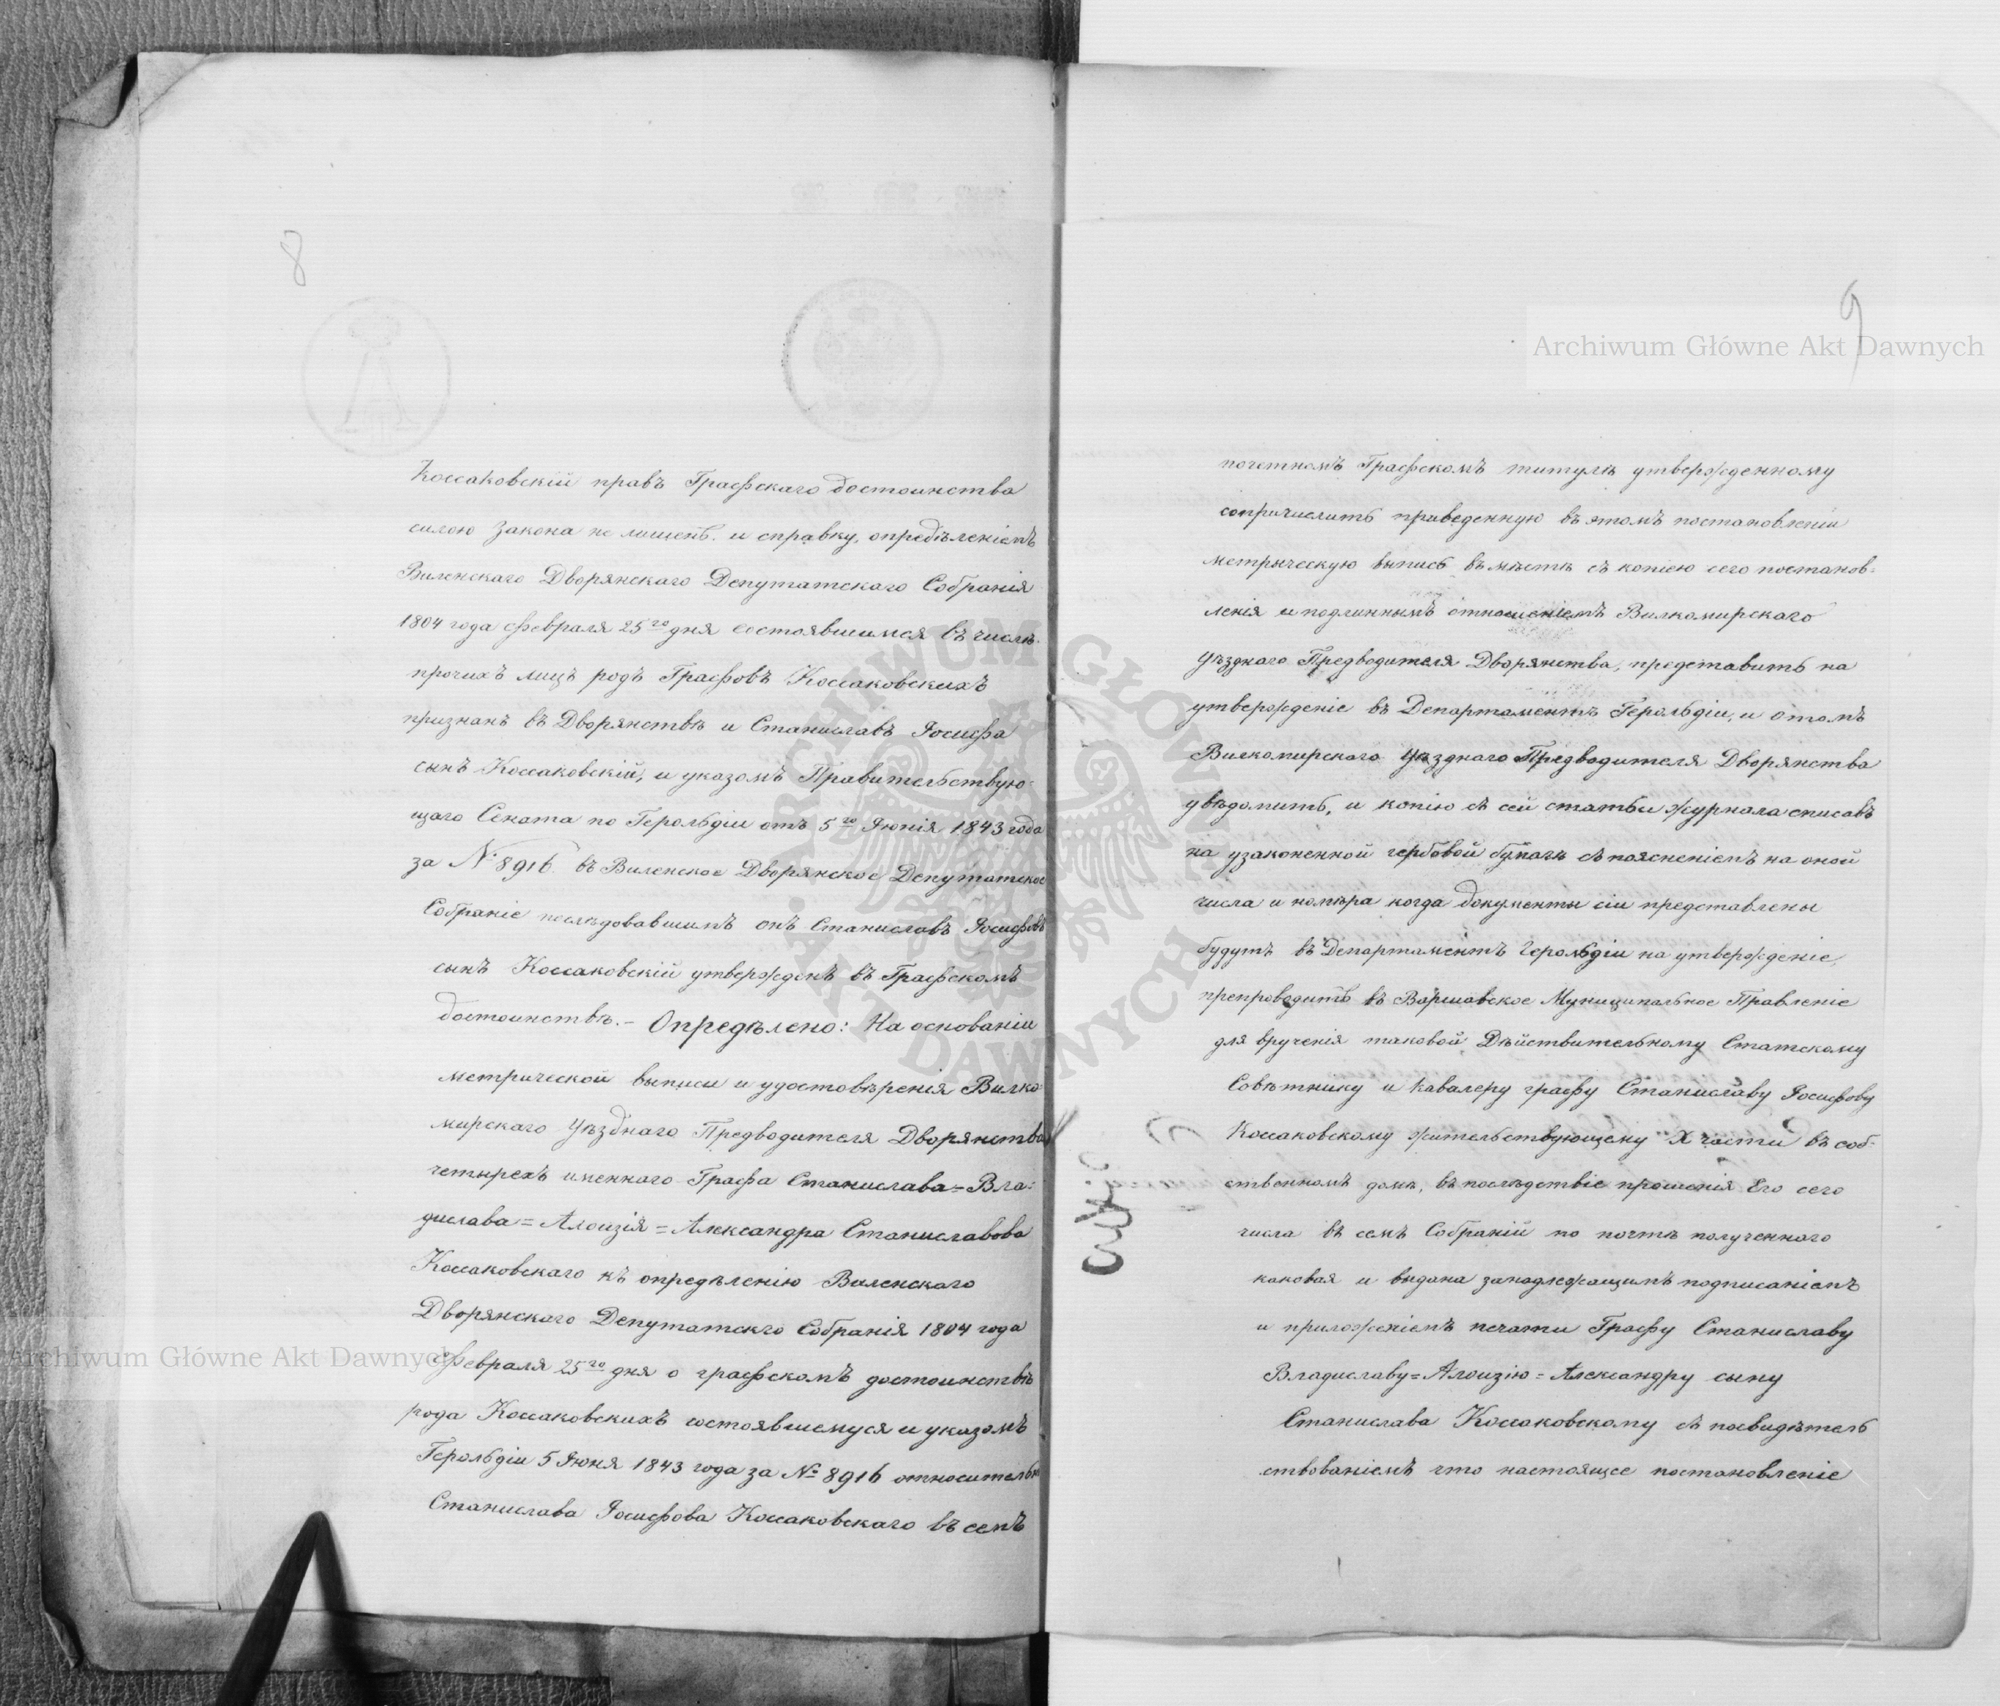 8
Коссаковскій правъ Графскаго достоинства
силою закона не лишенъ. и справку, опредѣленіемъ
Виленскаго Дворянскаго Депутатскаго Собранія
1804 года февраля 25го дня состоявшимся въ числѣ
прочихъ лицъ родъ Графовъ Коссаковскихъ
признанъ въ Дворянствѣ и Станиславъ Іосифа
сынъ Коссаковскій, и указомъ Правительствую-
щаго Сената по Герольдіи отъ 5го Іюнія 1843 года
за № 8916 въ Виленское Дворянское Депутатское
Собраніе послѣдовавшимъ онъ Станиславъ Іосифовъ
сынъ Коссаковскій утвержденъ въ Графскомъ
достоинствѣ. – Опредѣлено: На основаніи
метрической выписи и удостовѣренія Вилко-
мирскаго Уѣзднаго Предводителя Дворянства
четырехъ именнаго Графа Станислава=Вла-
дислава=Алоизія=Александра Станиславова
Коссаковскаго къ опредѣленію Виленскаго
Дворянскаго Депутатскго Собранія 1804 года
февраля 25го дня о графскомъ достоинствѣ
рода Коссаковскихъ состоявшемуся и указомъ
Герольдіи 5 Іюня 1843 года за № 8916 относительно
Станислава Іосифова Коссаковскаго въ семъ
9
Archiwum Główne Akt Dawnych
почетномъ Графскомъ титулѣ утвержденному
сопричислить приведенную въ этомъ постановленіи
метрическую выпись вмѣстѣ съ копіею сего постанов-
ленія и подлиннымъ отношеніемъ Вилкомирскаго
Уѣзднаго Предводителя Дворянства, представить на
утвержденіе въ Департаментъ Герольдіи, и о томъ
Вилкомирскаго Уѣзднаго Предводителя Дворянства
увѣдомить, и копію съ сей статьи журнала списавъ
на узаконенной гербовой бумагѣ съ поясненіемъ на оной
числа и номѣра когда документы сіи представлены
будутъ въ Департаментъ Герольдіи на утвержденіе,
препроводить въ Варшавское Муниципальное Правленіе
для врученія таковой Дѣйствительному Статскому
Совѣтнику и Кавалеру графу Станиславу Іосифову
Коссаковскому жительствующему X части въ соб-
ственномъ домѣ, въ послѣдствіе прошенія Его сего
числа въ семъ Собраніи по почтѣ полученнаго
каковая и выдана за надлежащимъ подписаніемъ
и приложеніемъ печати Графу Станиславу
Владиславу=Алоизію=Александру сыну
Станислава Коссаковскому съ посвидѣтель
ствованіемъ что настоящее постановленіе
Archiwum Główne Akt Dawnych
ARCHIWUM GŁÓWNE AKT DAWNYCH